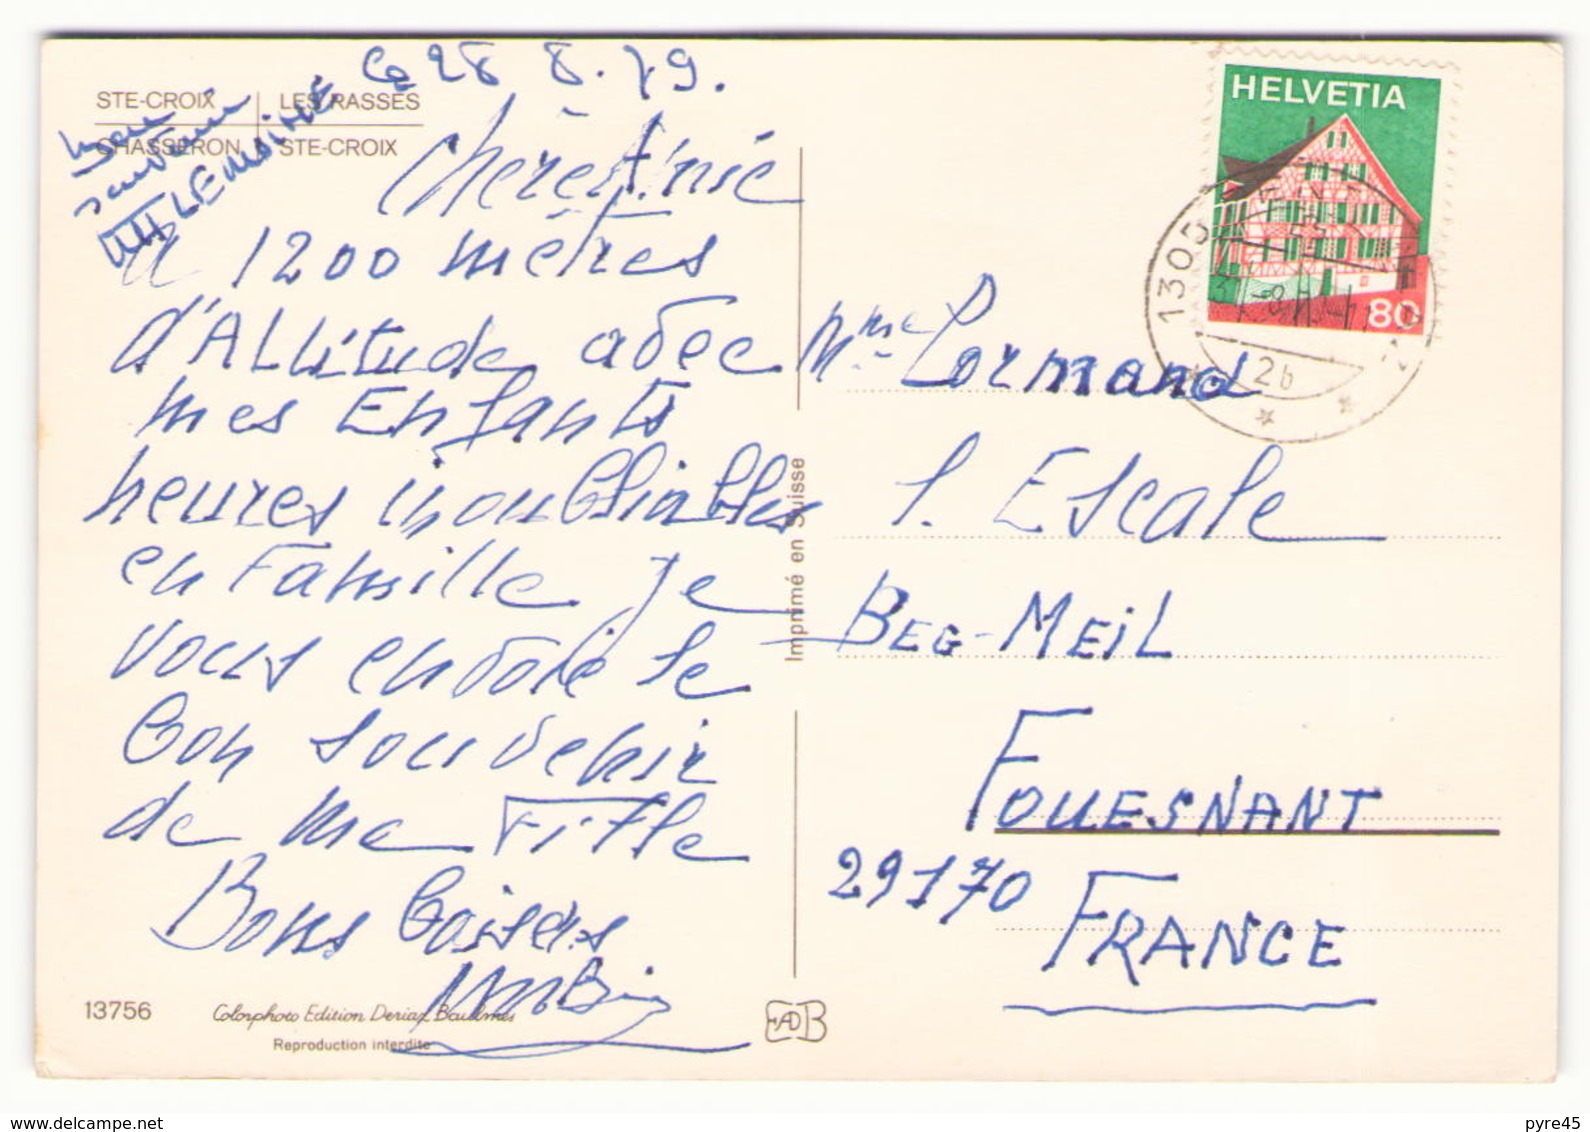 STE-CROIX LES RASSES
CHASSERON STE-CROIX
Le 28 8.79.
Bon
souvenir
LEMOINE
Chère
à 1200 mètres
d'Altitude avec
mes Enfants
heures inoubliables
en Famille Je
vous envoie le
bon souvenir
de ma Fille
Bons baisers
13756 Colorphoto Edition Deriaz Baulmes
Reproduction interdite
Imprimé en Suisse
HELVETIA
80
130
2b
Mme Cormand
l'Escale
BEG-MEIL
FOUESNANT
29170 FRANCE
www.delcampe.net
pyre45